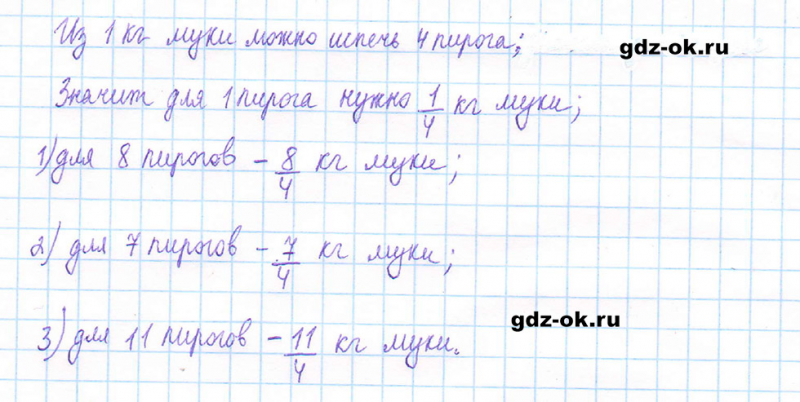 Из 1 кг муки можно испечь 4 пирога;
gdz-ok.ru
Значит для 1 пирога нужно 1/4 кг муки;
1) для 8 пирогов – 8/4 кг муки;
2) для 7 пирогов – 7/4 кг муки;
gdz-ok.ru
3) для 11 пирогов – 11/4 кг муки.